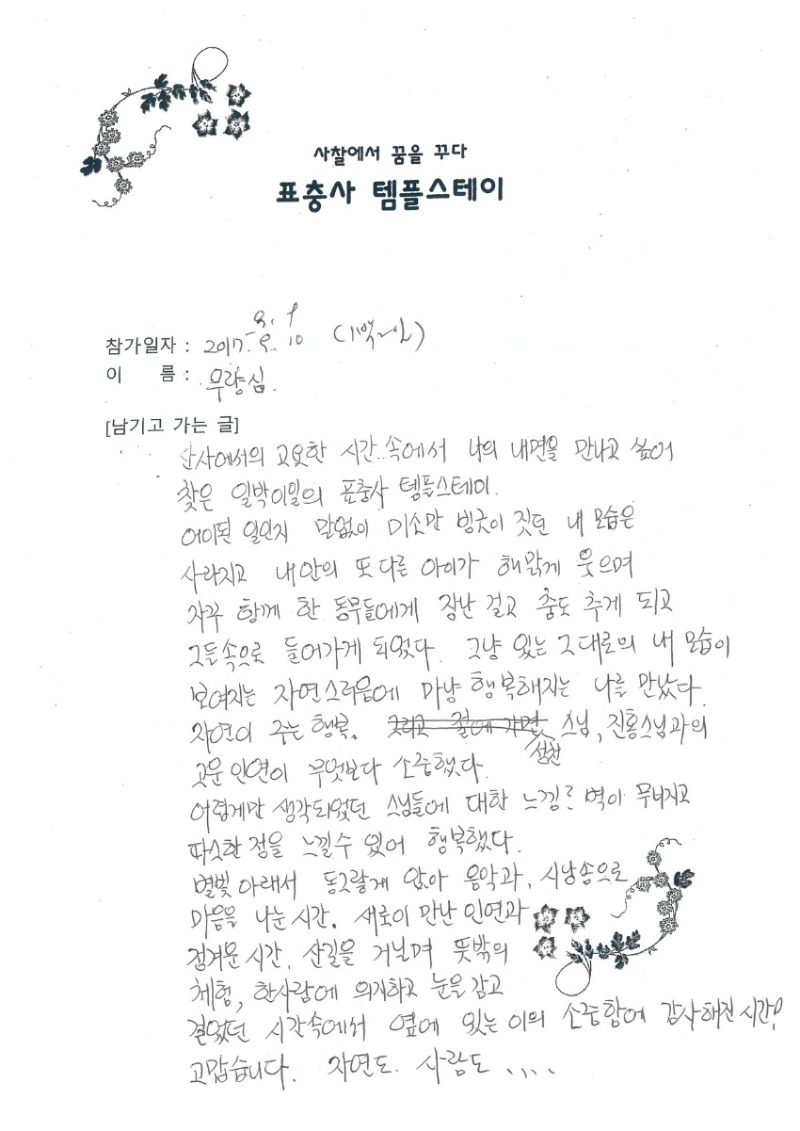 사찰에서 꿈을 꾸다
표충사 템플스테이
참가일자 : 2017. 9. 9
9. 10 (1박2일)
이 름 : 무량심.
[남기고 가는 글]
산사에서의 고요한 시간..속에서 나의 내면을 만나고 싶어
찾은 일박이일의 표충사 템플스테이.
어이된 일인지 말없이 미소만 빙긋이 짓던 내 모습은
사라지고 내안의 또 다른 아이가 해맑게 웃으며
자꾸 함께 한 동무들에게 장난 걸고 춤도 추게 되고
그들속으로 들어가게 되었다. 그냥 있는 그대로의 내 모습이
보여지는 자연스러움에 마냥 행복해지는 나를 만났다.
자연이 주는 행복. 그리고 절에 가면, 스님, 진홍스님과의
성천
고운 인연이 무엇보다 소중했다.
어렵게만 생각되었던 스님들에 대한 느낌? 벽이 무너지고
따스한 정을 느낄수 있어 행복했다.
별빛 아래서 동그랗게 앉아 음악과, 시낭송으로
마음을 나눈 시간. 새로이 만난 인연과
정겨운 시간. 산길을 거닐며 뜻밖의
체험, 한사람에 의지하고 눈을 감고
걸었던 시간속에서 옆에 있는 이의 소중함에 감사해진 시간!
고맙습니다. 자연도. 사람도 ....